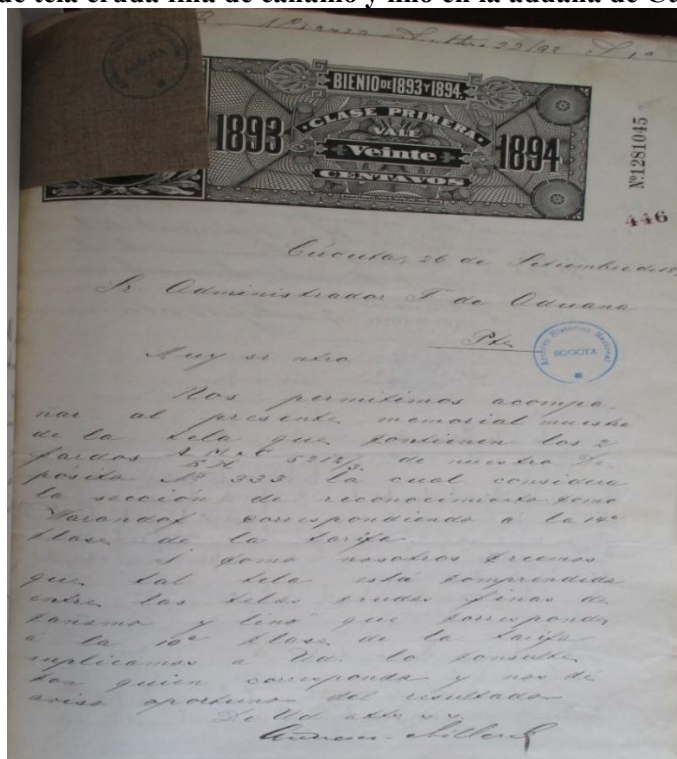 de tela cruda fina de cáñamo y lino en la aduana de Cú
BIENIO DE 1893 Y 1894.
CLASE PRIMERA
1893 VALE 1894
Veinte
CENTAVOS
Nº1281045
446
Cúcuta, 26 de Setiembre de 18
Sr. Administrador T de Aduana
Pte
Archivo Historico Nacional
BOGOTA
Muy sr ntro
Nos permitimos acompa-
ñar al presente memorial muestra
de la tela que contienen los 2
fardos 5212/3 de nuestro De-
pósito Nº 333 la cual considera
la sección de reconocimiento como
"Warandof" correspondiendo a la 14ª
clase de la tarifa
I como nosotros creemos
que tal tela está comprendida
entre las telas crudas finas de
canamo y lino que corresponde
á la 10ª clase de la tarifa
suplicamos a Ud. lo consulte
con quien corresponda y nos de
aviso oportuno del resultado
De Ud atto